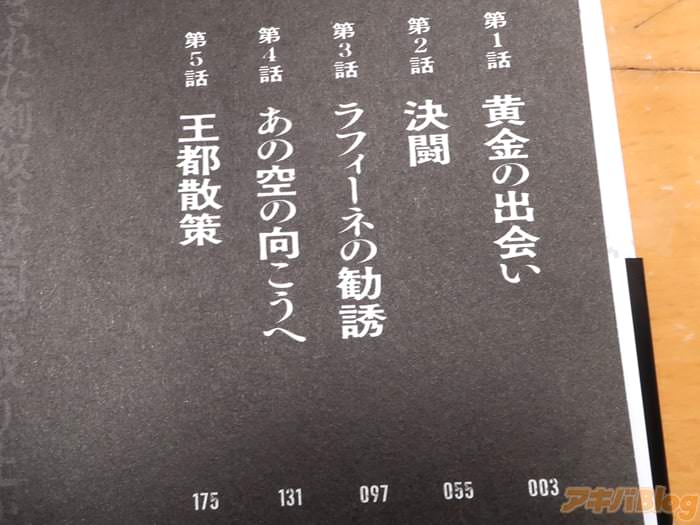 第1話 黄金の出会い 003
第2話 決闘 055
第3話 ラフィーネの勧誘 097
第4話 あの空の向こうへ 131
第5話 王都散策 175
アキバBlog